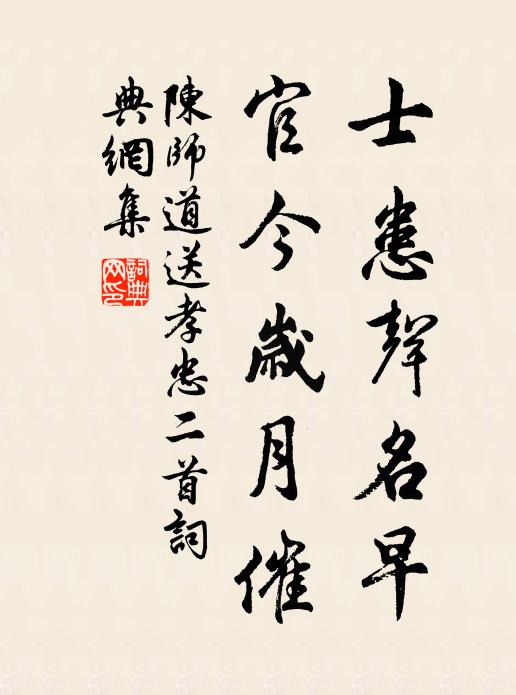 士患聲名早
官今歲月催
陳師道送孝忠二首詞
典網集
詞典網印